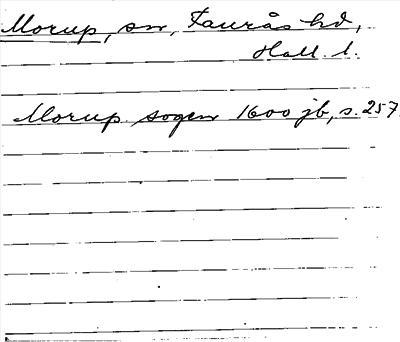 Morup, sn, Faurås hd,
Hall. l.
Morup sogen 1600 jb, s. 257.